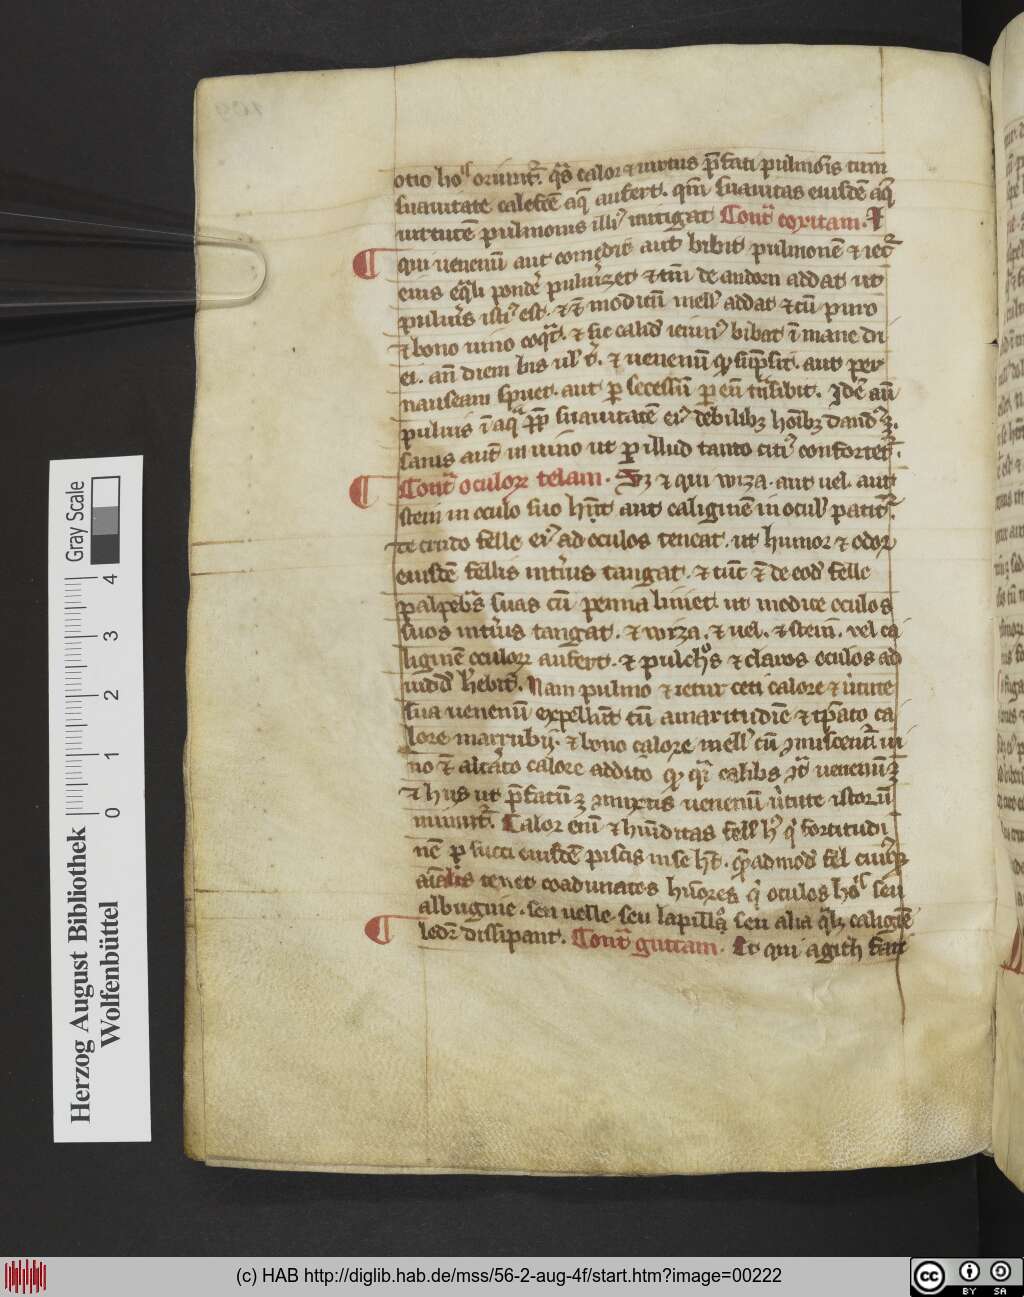 otio hoꝰ oriunt᷑. qͣs calor ⁊ uirtus p̄fati pulmōis cum
suauitate calefcē aq̄ aufert. qm̄ suauitas eiusdē aq̄
uirtutē pulmonis illiꝰ mitigat Contͣ toxicam. Et
qui uenenū aut comedit aut bibit pulmonē ⁊ iec᷑
eius eq̄li pondeꝰ puluizet ⁊ tm̄ de andorn addat ut
pulu̾is istiꝰ est. ⁊ modicū mell' addat ⁊ cū puro
⁊ bono uino coq̄t. ⁊ sic calid' ieiunꝰ bibat ī mane di
ei. an̄ diem bis ul' t̾. ⁊ uenenū sūpsit. aut per
nauseam spuet. aut ꝑ secessū ꝑ eū tͣnsibit. Idē aū
puluis ī aqͣ ꝓꝑ suauitatē eiꝰ debilibꝫ hoībꝫ dandꝰ ē.
sanis aut̄ in uino ut ꝑ illud tanto citiꝰ confortet᷑.
Contͣ oculoꝝ telam. Sꝫ ⁊ qui wiza. aut uel. aut
stein in oculo suo hn̄t aut caliginē in ocul' patit᷑.
de crudo felle eiꝰ ad oculos teneat. ut humor ⁊ odor
eiusdē fellis int̾ius tangat. ⁊ tūc de eod' felle
palpebͣs suas cū penna liniet ut modice oculos
suos int̾ius tangat. ⁊ wiza. ⁊ uel. ⁊ stein. vel ca
liginē oculoꝝ aufert. ⁊ pulchͦs ⁊ claros oculos ad
uidēd' hēbit. Nam pulmo ⁊ iecur ceti calore ⁊ u̾tute
sua uenenū expellūt cū amaritudīe ⁊ tp̄ato ca
lore marrubij. ⁊ bono calore mell' cū ꝯmiscent᷑ ui
no ⁊ altͣto calore addito uenenū ē
⁊ hijs ut p̄fatū ē ꝯmixtis uenenū u̾tute istoꝝ
minuit᷑. Calor enī ⁊ hūiditas fell' hꝰ qͥ fortitudi
nē ꝑ succi eiusdē piscis in se ht̄. qͣadmod' fel cuiꝰqꝫ
aīalis tenet coadunatos hūores qͥ oculos hoꝰ seu
albugine. seu uelle. seu lapillo seu alia qͣlꝫ caligīe
led̄e dissipant. Contͣ guttam. Et qui a gith fati
Herzog August Bibliothek
Wolfenbüttel
0 1 2 3 4
Gray Scale
(c) HAB http://diglib.hab.de/mss/56-2-aug-4f/start.htm?image=00222
cc BY SA